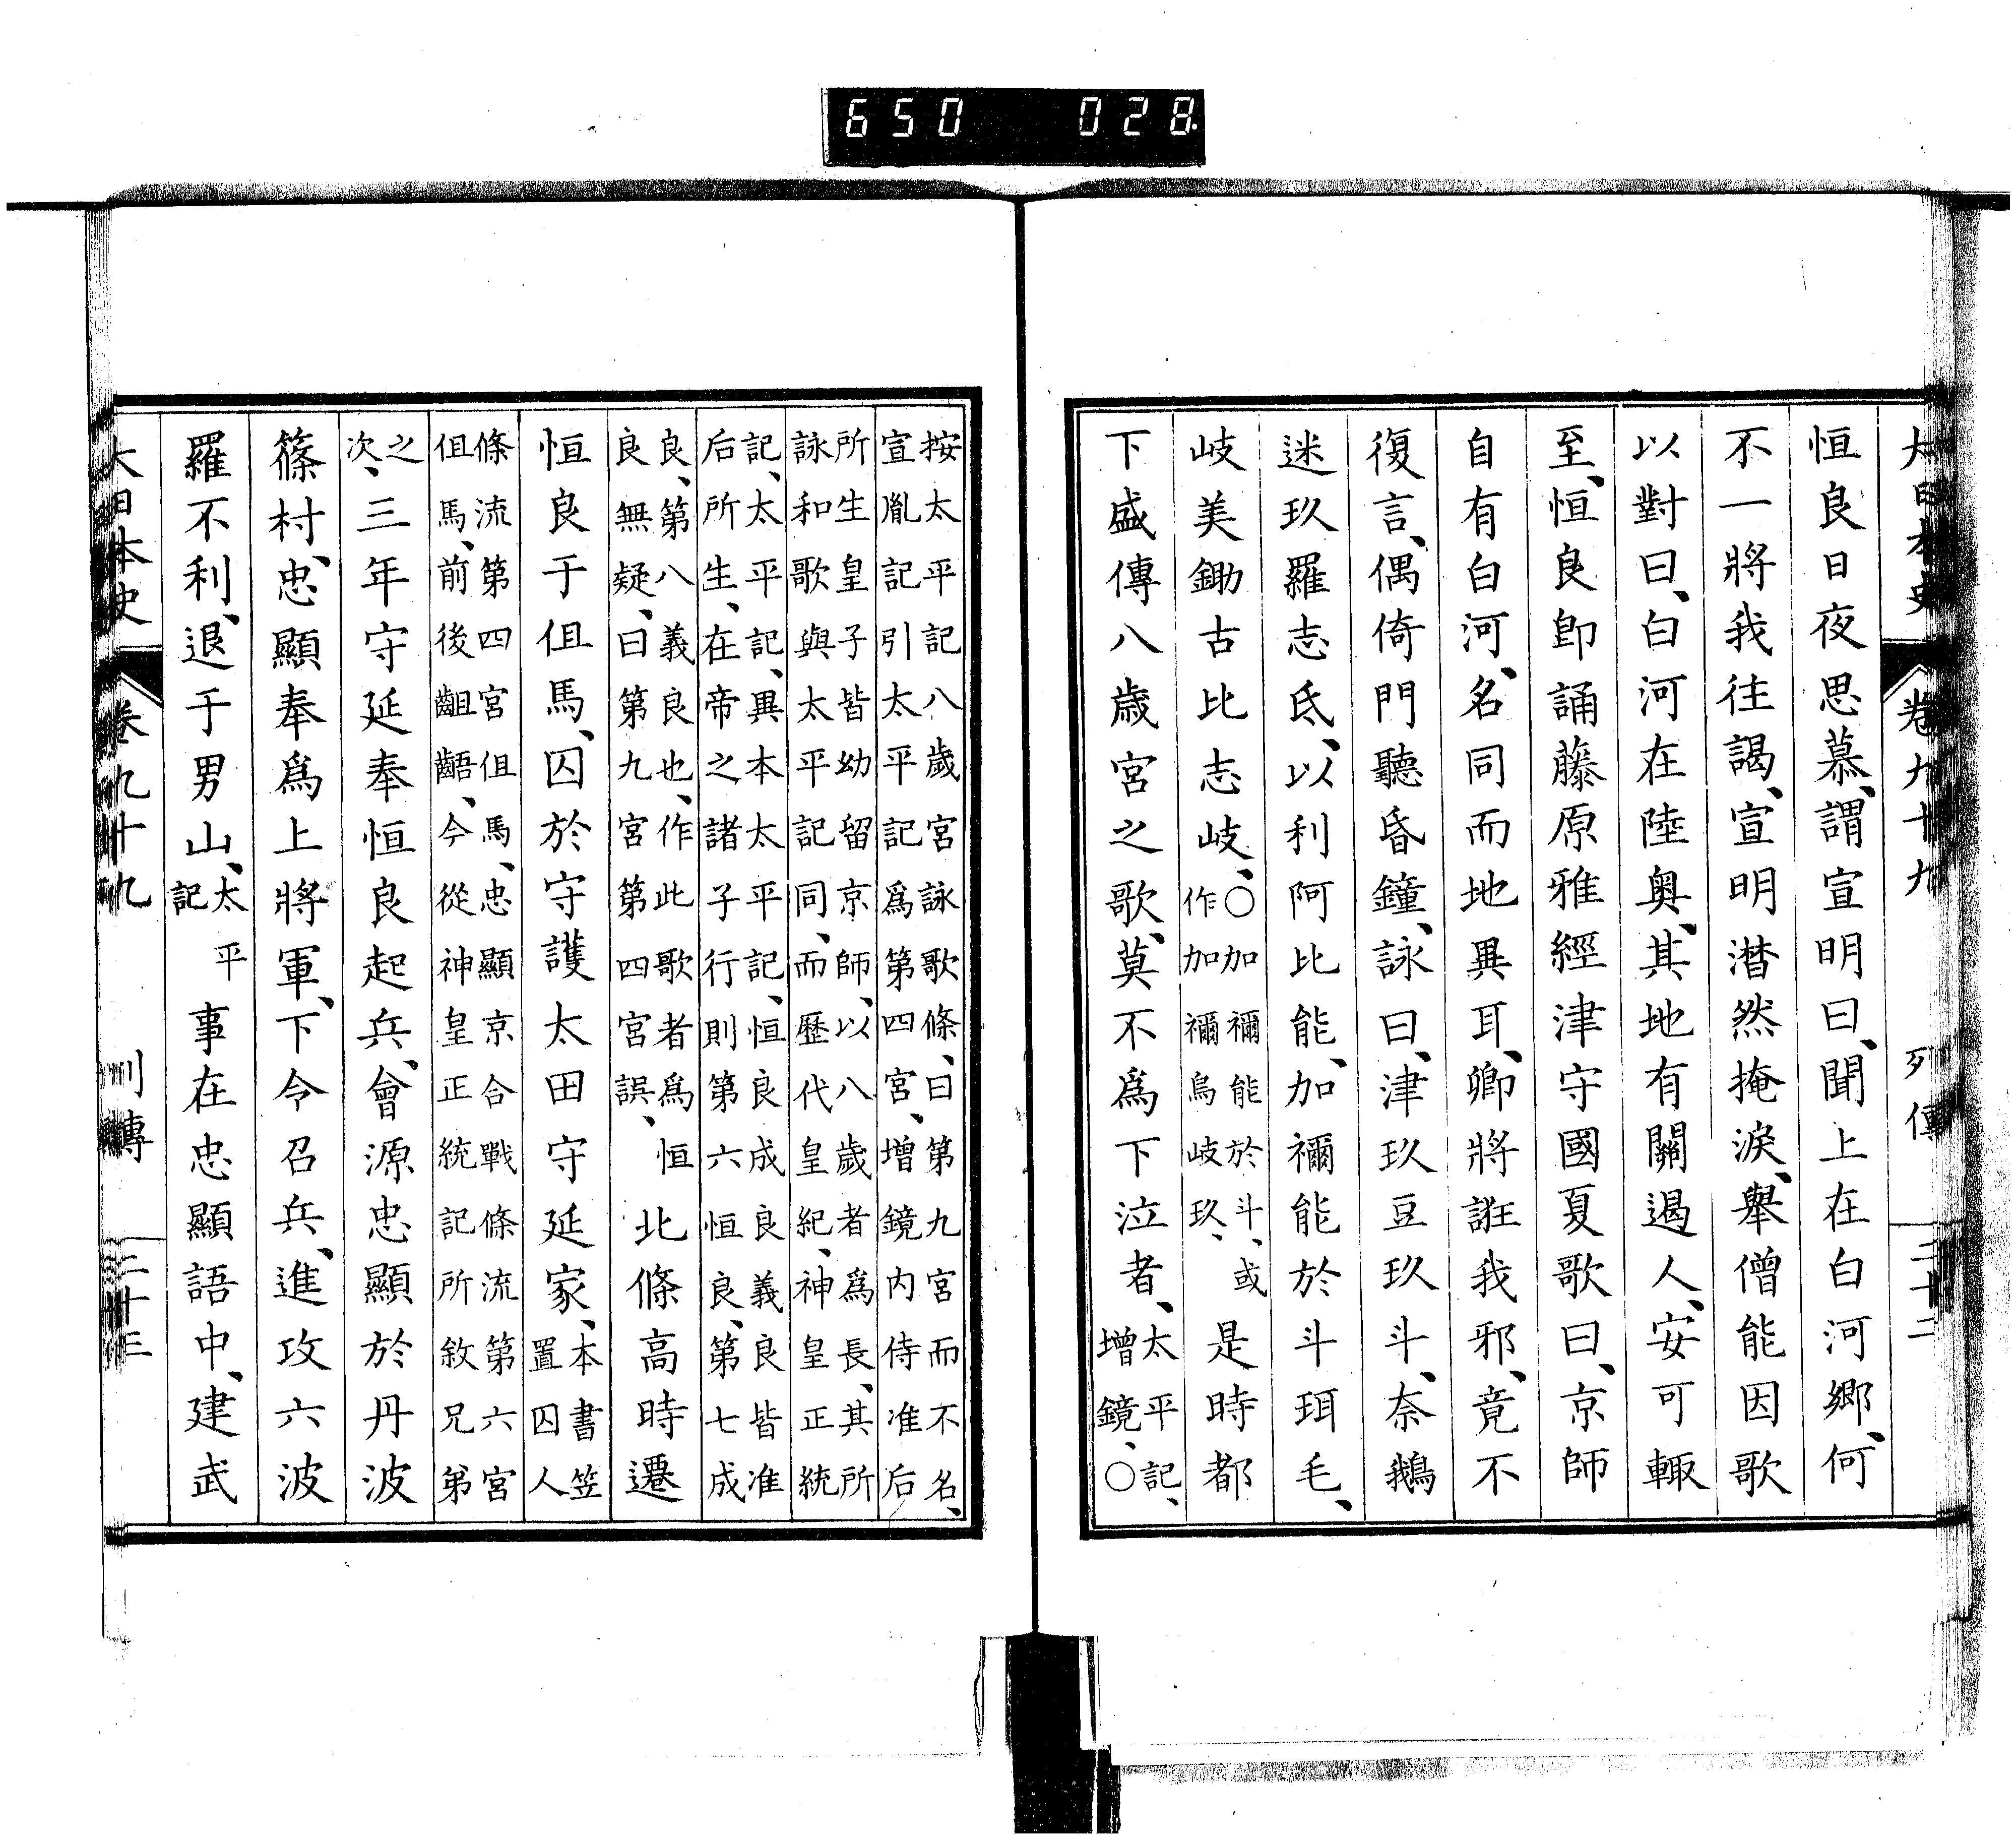 650 028
大日本史 卷九十九 列傳 二十二
恒良日夜思慕、謂宣明曰、聞上在白河郷、何
不一將我往謁、宣明潸然掩淚、舉僧能因歌
以對曰、白河在陸奥、其地有關遏人、安可輙
至、恒良卽誦藤原雅經津守國夏歌曰、京師
自有白河、名同而地異耳、卿將誑我邪、竟不
復言、偶倚門聽昏鐘、詠曰、津玖豆玖斗、奈鵝
迷玖羅志氐、以利阿比能、加禰能於斗珥毛、
岐美鋤古比志岐、
○加禰能於斗、或
作加禰烏岐玖、
是時都
下盛傳八歲宮之歌、莫不爲下泣者、
太平記、
增鏡、○
按太平記八歲宮詠歌條、曰第九宮而不名、
宣胤記引太平記爲第四宮、增鏡内侍准后
所生皇子皆幼留京師、以八歲者爲長、其所
詠和歌與太平記同、而歷代皇紀、神皇正統
記、太平記、異本太平記、恒良成良義良皆准
后所生、在帝之諸子行則第六恒良、第七成
良、第八義良也、作此歌者爲恒
良無疑、曰第九宮第四宮誤、
北條高時遷
恒良于但馬、囚於守護太田守延家、
本書笠
置囚人
條流第四宮但馬、忠顯京合戰條流第六宮
但馬、前後齟齬、今從神皇正統記所敘兄弟
之
次、
三年守延奉恒良起兵、會源忠顯於丹波
篠村、忠顯奉爲上將軍、下令召兵、進攻六波
羅不利、退于男山、
太平
記
事在忠顯語中、建武
大日本史 卷九十九 列傳 二十三